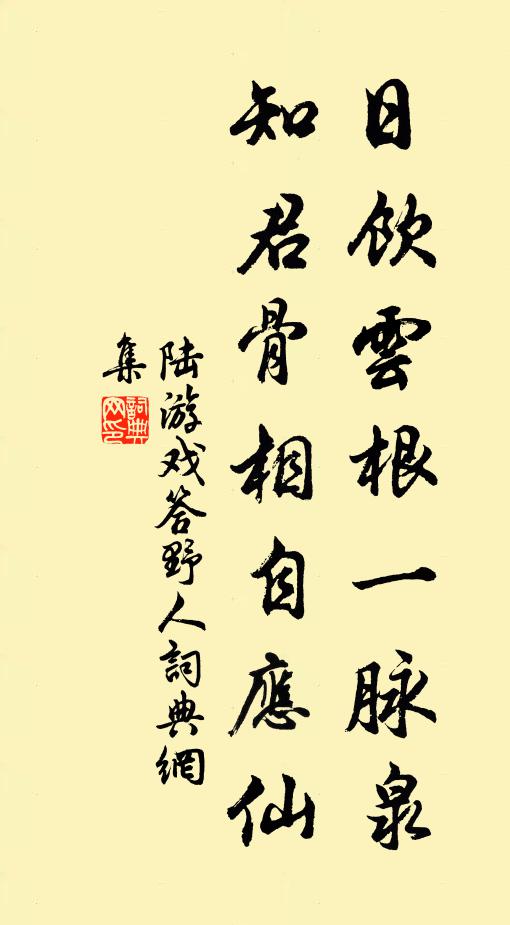 日飲雲根一脉泉
知君骨相自應仙
陆游戏答野人詞典網
集
詞典
网印